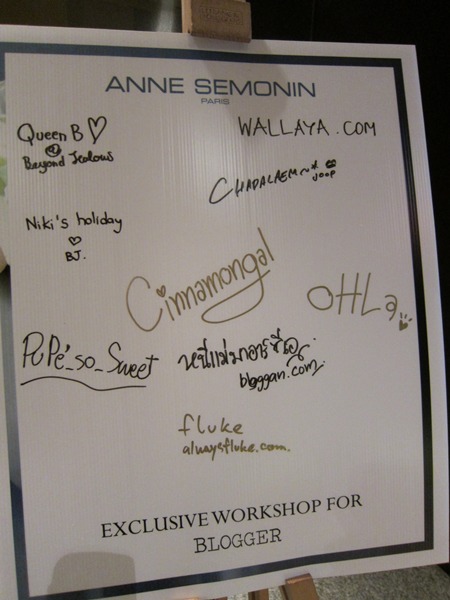 ANNE SEMONIN
PARIS
Queen B ♡
@
Beyond Jealous
WALLAYA.COM
CHADALAEM
JOOP
Niki's holiday
♡
BJ.
Cinnamongal
OHLa
PuPé_so_Sweet
bloggan.com
fluke
alwaysfluke.com.
EXCLUSIVE WORKSHOP FOR
BLOGGER